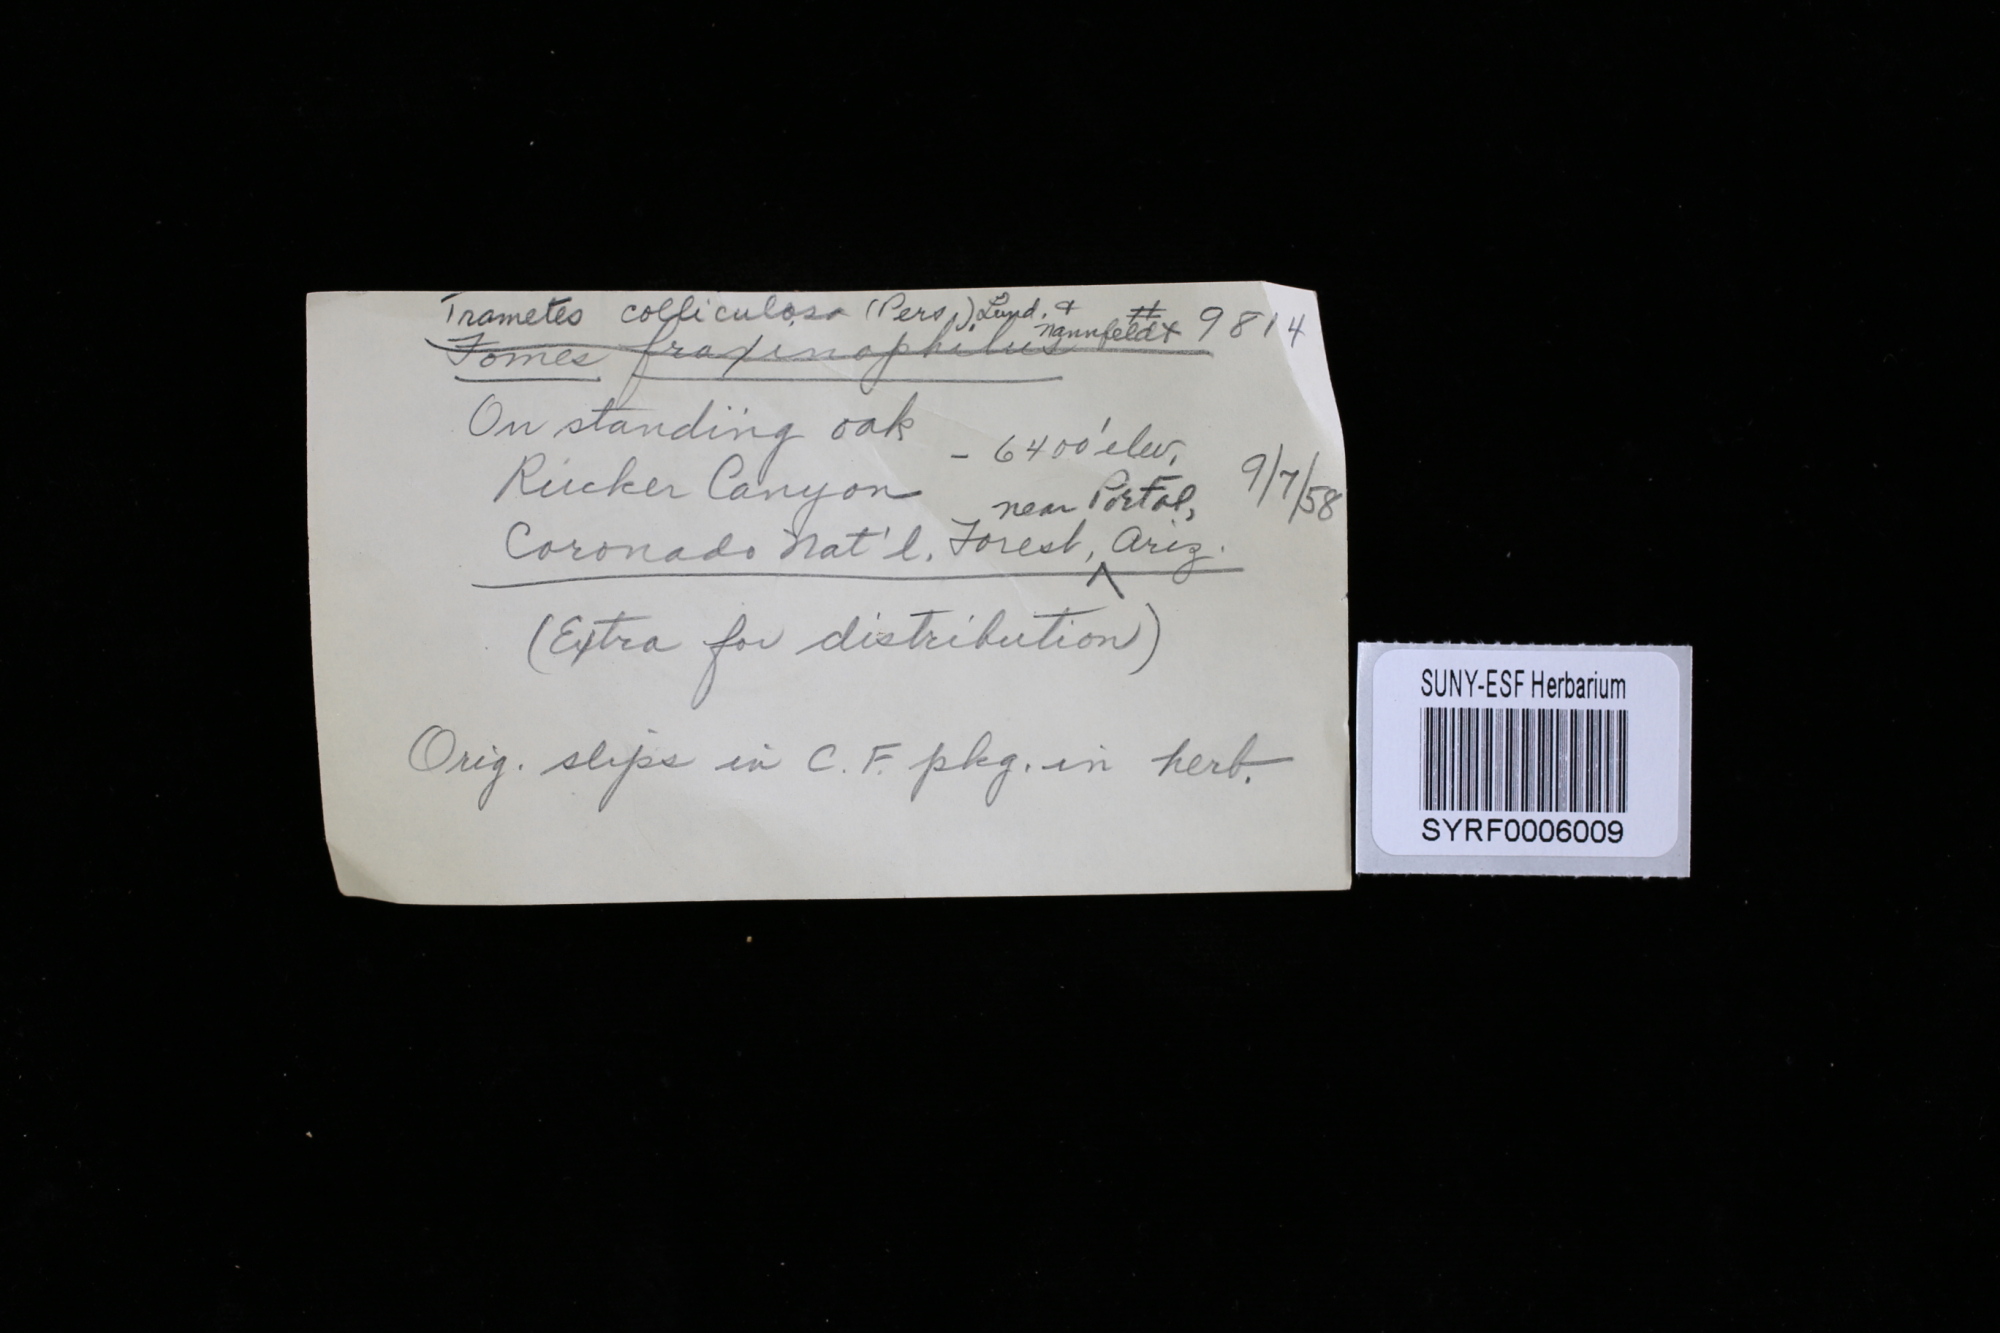 Trametes colliculosa (Pers.) Lund. & Nannfeldt # 9814
Fomes fraxinophilus
On standing oak - 6400' elev.
Rucker Canyon 9/7/58
near Portal,
Coronado Nat'l. Forest, Ariz.
(Extra for distribution)
Orig. slips in C.F. pkg. in herb.
SUNY-ESF Herbarium
SYRF0006009